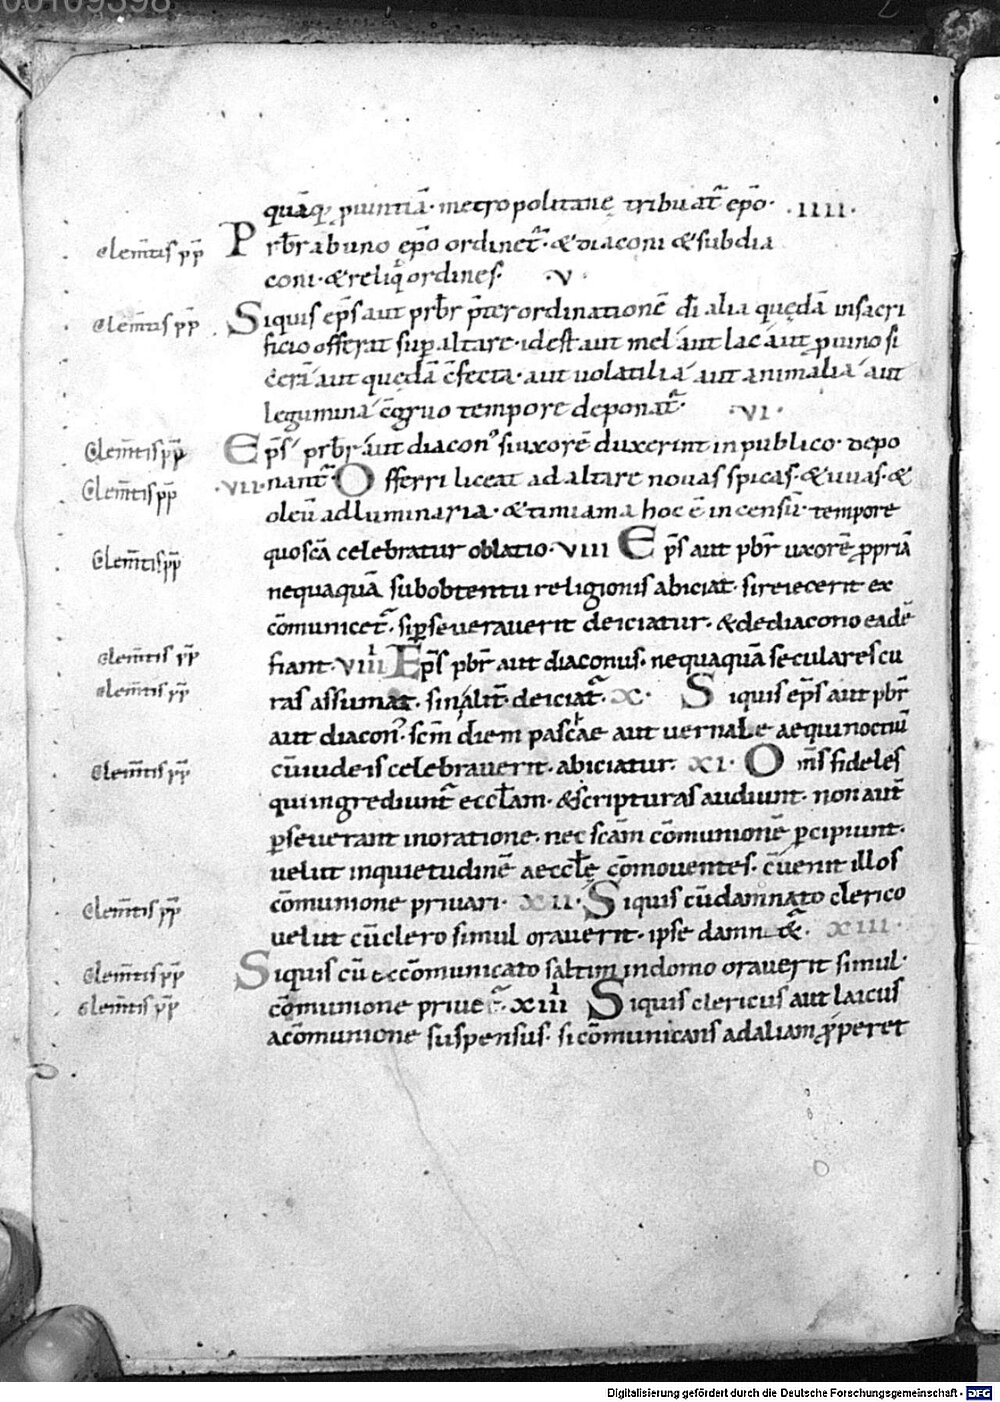 quāq; ꝓuintiā· metropolitanę tribuat̄ ep̄o· ·IIII·
Clem̄tis pp̄ Prb̄r abuno ep̄o ordinet̄· & diaconi & subdia
coni· & reliq̇ ordines· ·V·
Clem̄tis pp̄ Siquis ep̄s aut prb̄r p̄ter ordinationē dn̄i alia quędā insacri
ficio offerat suꝑ altare· idest aut mel aut lac aut ꝓ uino si
cerā aut quędā c̄fecta· aut uolatilia aut animalia aut
legumina c̄gruo tempore deponat̄· ·VI·
Clem̄tis pp̄ Ep̄s prb̄r aut diacon' si uxorē duxerint in publico· depo
Clem̄tis pp̄ ·VII· nant̄ Offerri liceat ad altare nouas spicas· & uuas· &
oleū ad luminaria· & timiama hoc ē incensū· tempore
Clem̄tis pp̄ quo sc̄a celebratur oblatio· VIII Ep̄s aut pb̄r uxorē ꝓpriā
nequaquā subobtentu religionis abiciat· si reiecerit ex
c̄omunicet̄· si ꝑseuerauerit deiciatur· & de diacono eadē
Clem̄tis pp̄ fiant· VIIII Ep̄s pb̄r aut diaconus· nequaquā seculares cu
Clem̄tis pp̄ ras assumat· sin alit̄· deiciat̄· X· Siquis ep̄s aut pb̄r
aut diacon'· sc̄m diem paschae aut uernale aequinoctiū
Clem̄tis pp̄ cū iudeis celebrauerit· abiciatur· XI· Om̄s fideles
qui ingrediunt̄ eccl̄am· & scripturas audiunt· non aut̄
ꝑseuerant in oratione· nec sc̄am cōmunionē ꝑcipiunt·
uelut inquietudinē aeccl̄ę cōmouentes· c̄uenit illos
Clem̄tis pp̄ cōmunione priuari· XII· Siquis cū damnato clerico
uelut cū clero simul orauerit· ipse damnet̄· XIII·
Clem̄tis pp̄ Siquis cū excōmunicato saltim in domo orauerit simul·
Clem̄tis pp̄ cōmunione priuet̄· XIIII Siquis clericus aut laicus
a cōmunione suspensus· si cōmunicans ad aliam ꝓperet
Digitalisierung gefördert durch die Deutsche Forschungsgemeinschaft - DFG